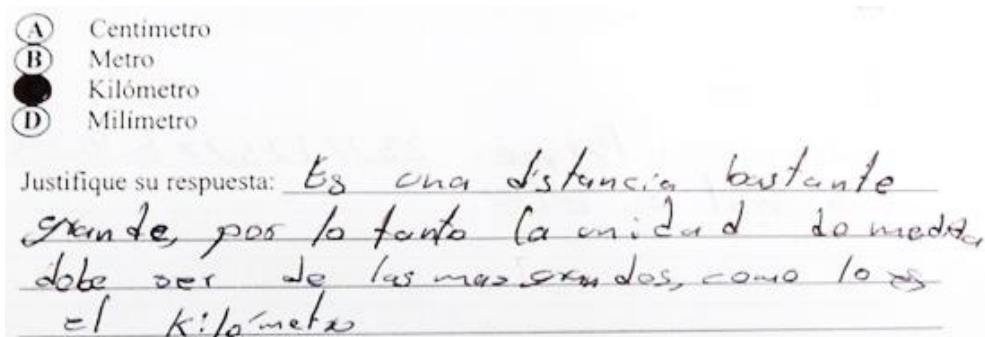 A Centímetro
B Metro
Kilómetro
D Milímetro
Justifique su respuesta: Es una distancia bastante
grande, por lo tanto la unidad de medida
debe ser de las mas grandes, como lo es
el Kilómetro